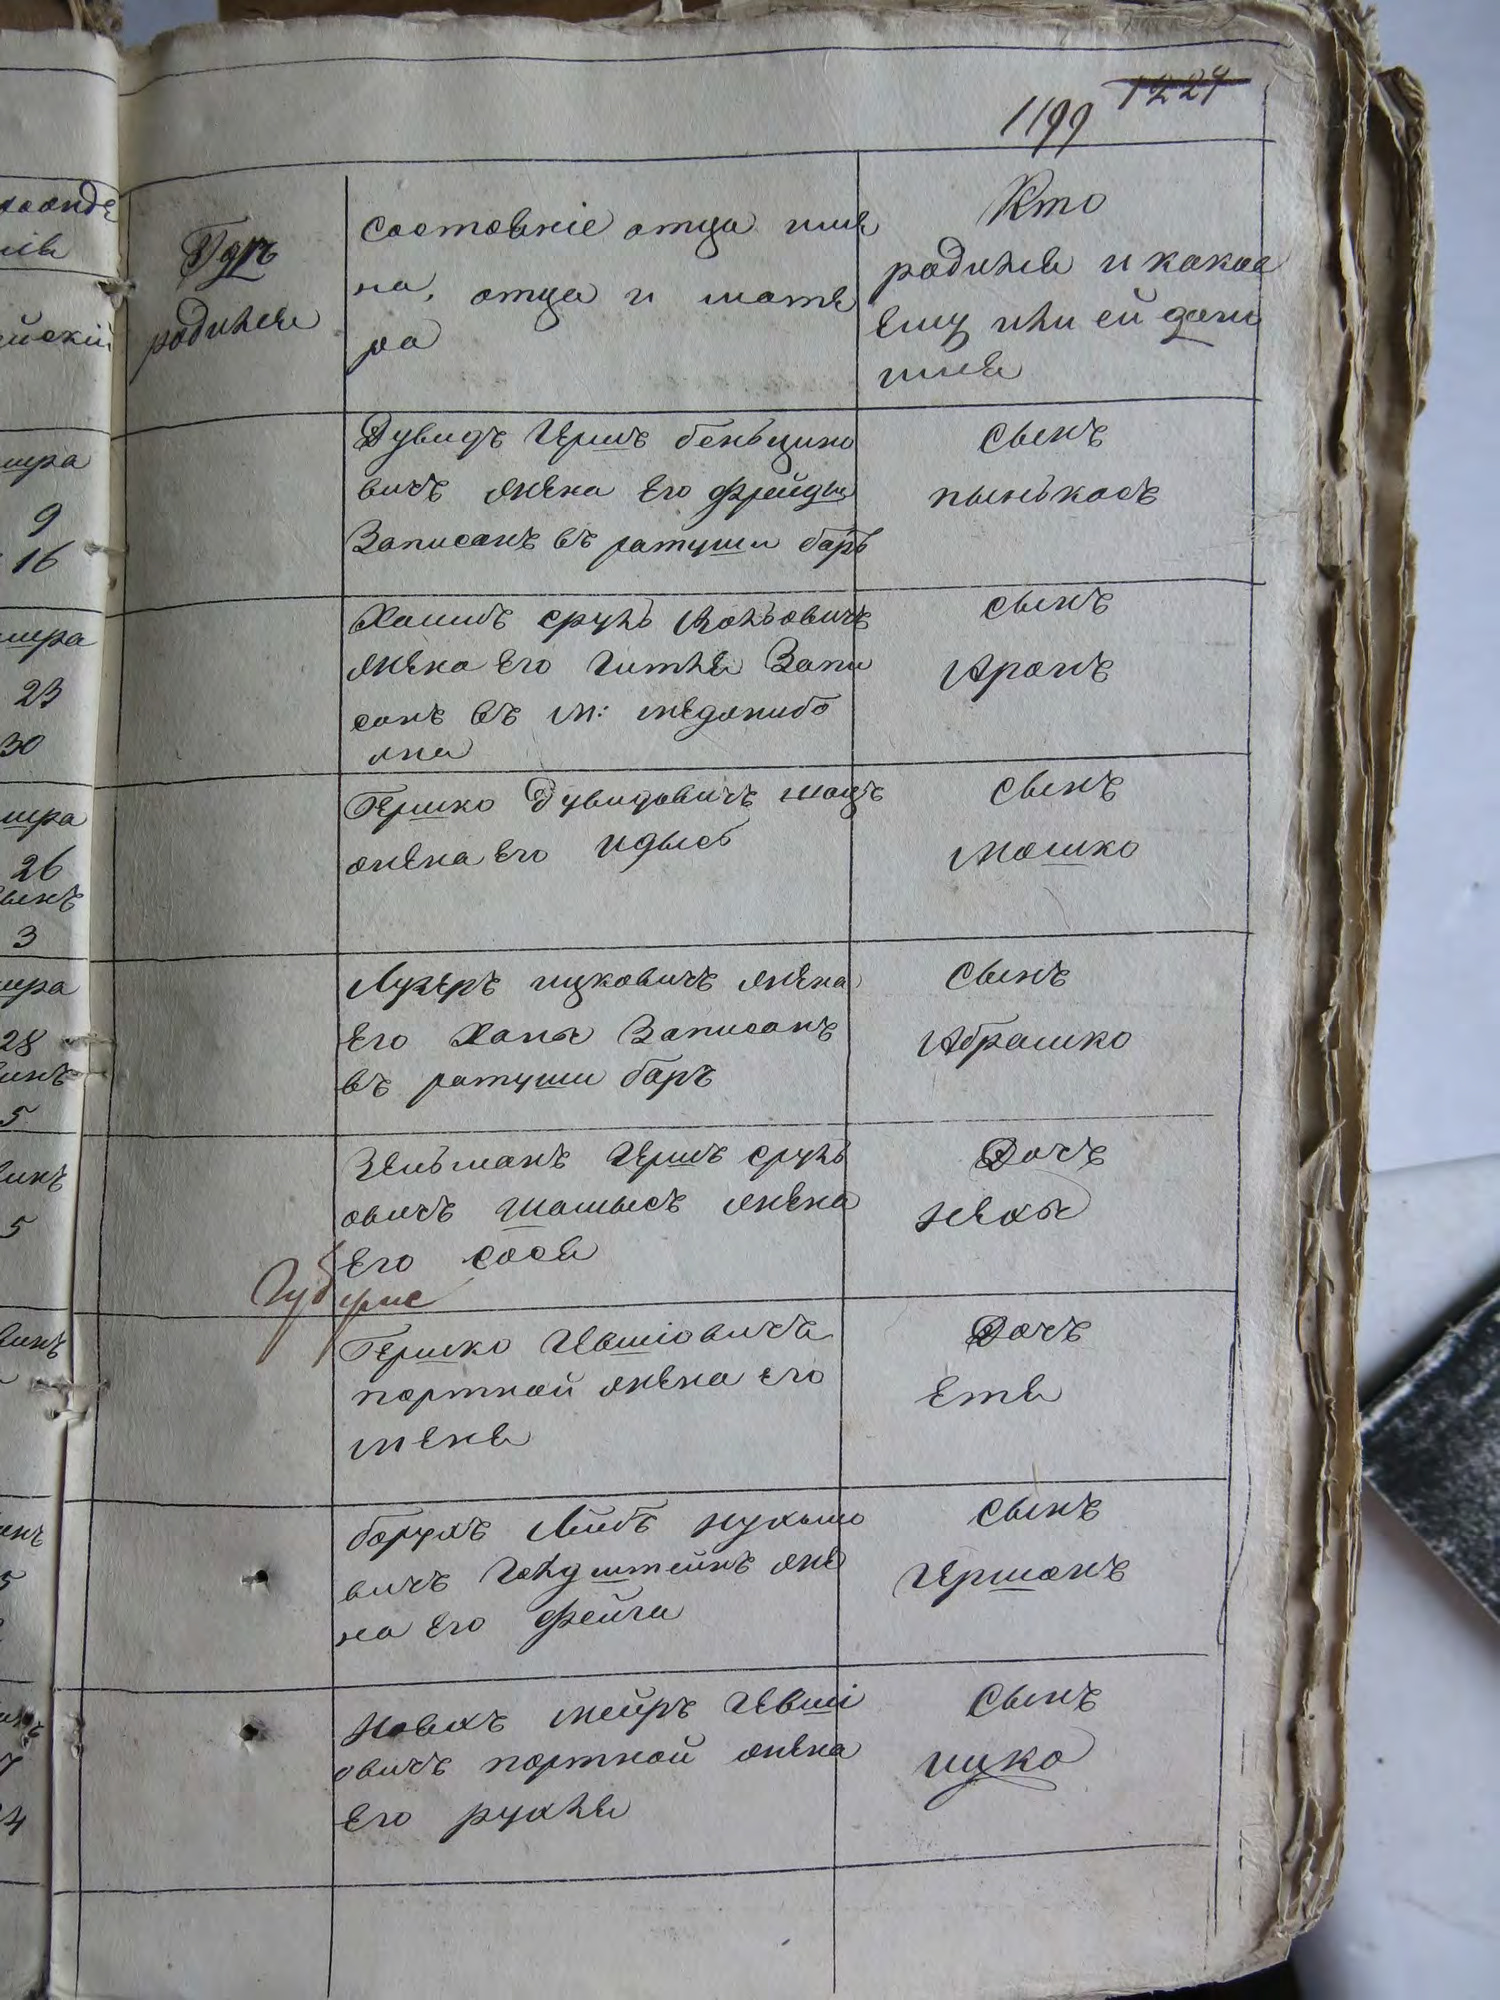 1199 1224
Гдѣ
родился
Состояніе отца име
на, отца и мате
ра
Кто
родился и какое
ему или ей дано
имя
Дувидъ Гершъ беньцио
вичъ жена его фрейда
Записанъ въ ратуши баръ
сынъ
пынькасъ
Хаимъ сруль Вольовичъ
жена его гитля Запи
санъ въ м: меджибо
жи
сынъ
Аронъ
Гершко Дувидовичъ шацъ
жена его Идысъ
сынъ
Мошко
Лузеръ ицковичъ жена
его Ханы Записанъ
въ ратуши баръ
сынъ
Абрашко
Зельманъ Гершъ сруль
овичъ шамысъ жена
его сося
Дочъ
нехы
Гершко Иевшіовичъ
портной жена его
меня
Дочъ
етя
борухъ Лейбъ нухымо
вичъ гольдштейнъ же
на его фейга
сынъ
Гершонъ
Новахъ мейръ Иевші
овичъ портной жена
его рухля
сынъ
ицко
пра
9
16
пра
23
30
пра
26
3
пра
28
5
5